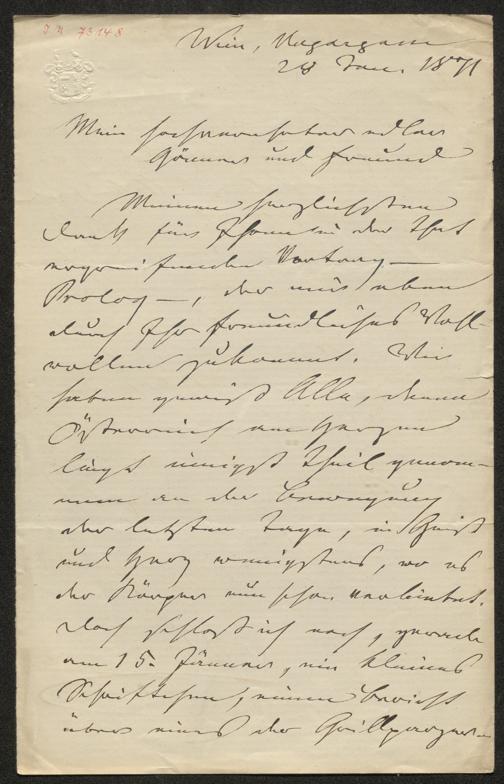 I N 73148
Wien, Ungargasse
28 Jan. 1871
Mein hochverehrter edler
Gönner und Freund
Meinen herzlichsten
Dank für Ihren in der That
ergreifenden Vortrag —
Prolog —, der mir eben
durch Ihr freundliches Wohl-
wollen zukommt. Wir
haben gewiß Alle, denen
Österreich am Herzen
liegt innigst Theil genom-
men an der Bewegung
der letzten Tage, in Geist
und Herz wenigstens, wo es
der Körper nun schon verbietet.
Doch schloß ich noch, gerade
am 15. Jänner, ein kleines
Schriftchen, einen Bericht
über eines der Grillparzer-